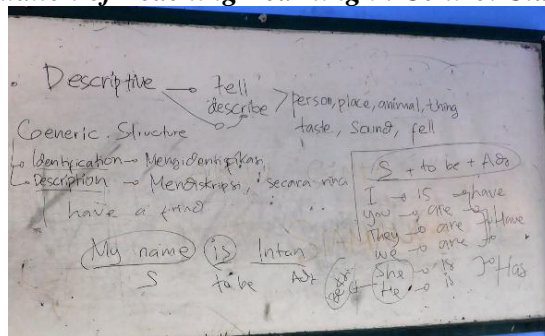 Descriptive → tell
describe > person, place, animal, thing
taste, Sound, fell
Generic Structure
Identification → Mengidentifikan
Description → Mendiskripsi, secara rinci
I have a frind
My name is Intan
S to be Adj
S + to be + Adj
I → is → have
you → are →
They → are → Have
we → are →
She → is
He → is
→ Has